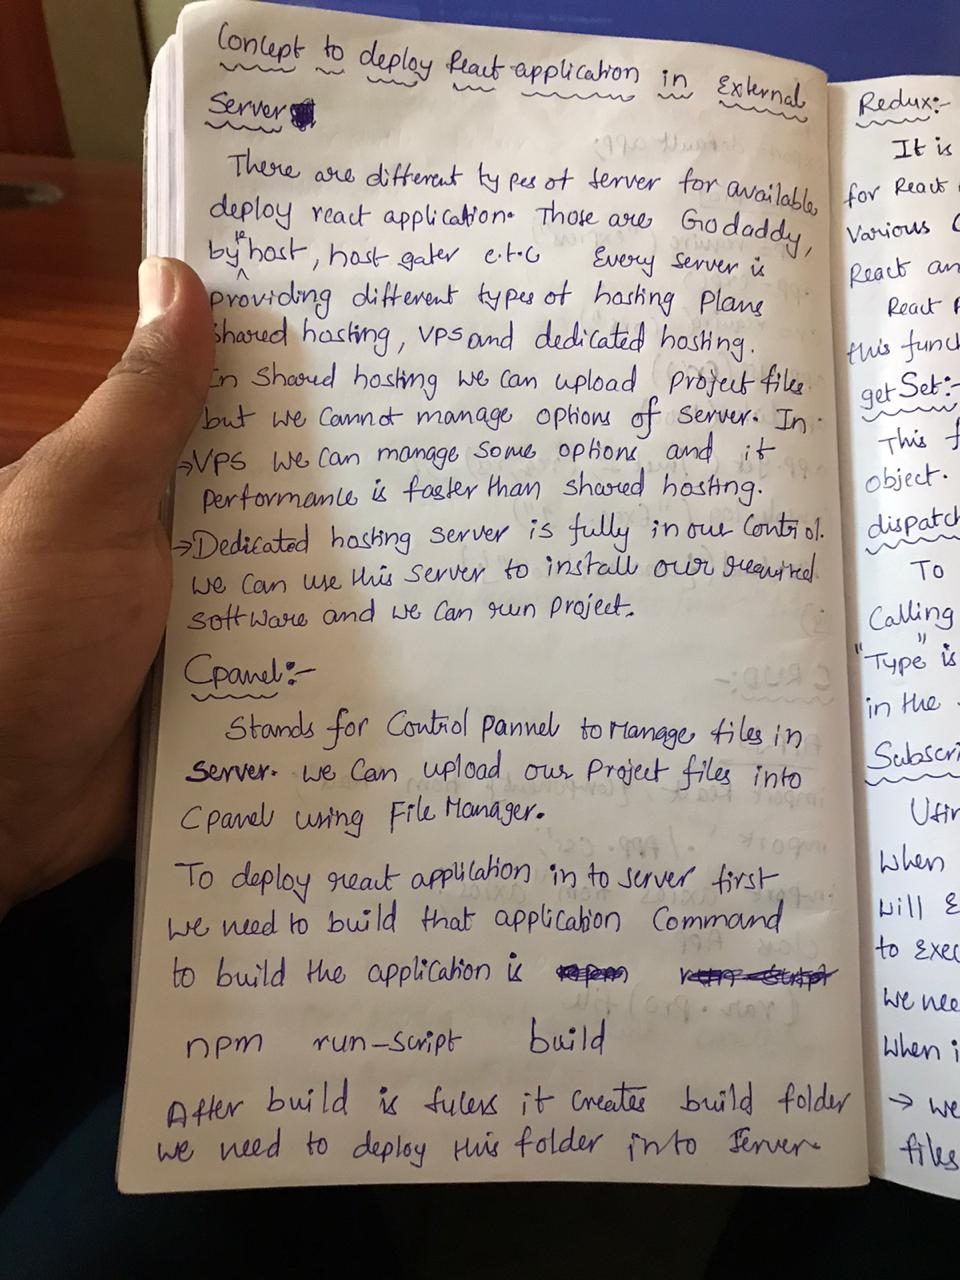 Concept to deploy React application in External
Server
There are different types of server for available
deploy react application. Those are Godaddy,
bytehost, host gater e.t.c Every server is
providing different types of hosting Plans
shared hosting, VPS and dedicated hosting.
In Shared hosting we can upload Project files
but we cannot manage options of server. In
→VPS we can manage some options and it
performance is faster than shared hosting.
→Dedicated hosting server is fully in our control.
we can use this server to install our required
software and we can run project.
Cpanel:-
Stands for Control pannel to Manage files in
server. we can upload our Project files into
Cpanel using File Manager.
To deploy react application in to server first
we need to build that application Command
to build the application is
npm run-script build
After build is it creates build folder
we need to deploy this folder into server.
Redux:-
It is
for React
Various
React an
React
this func
get Set:-
This f
object.
dispatch
To
Calling
"Type" is
in the
Subscri
When
will
to exec
we nee
when i
→ we
files